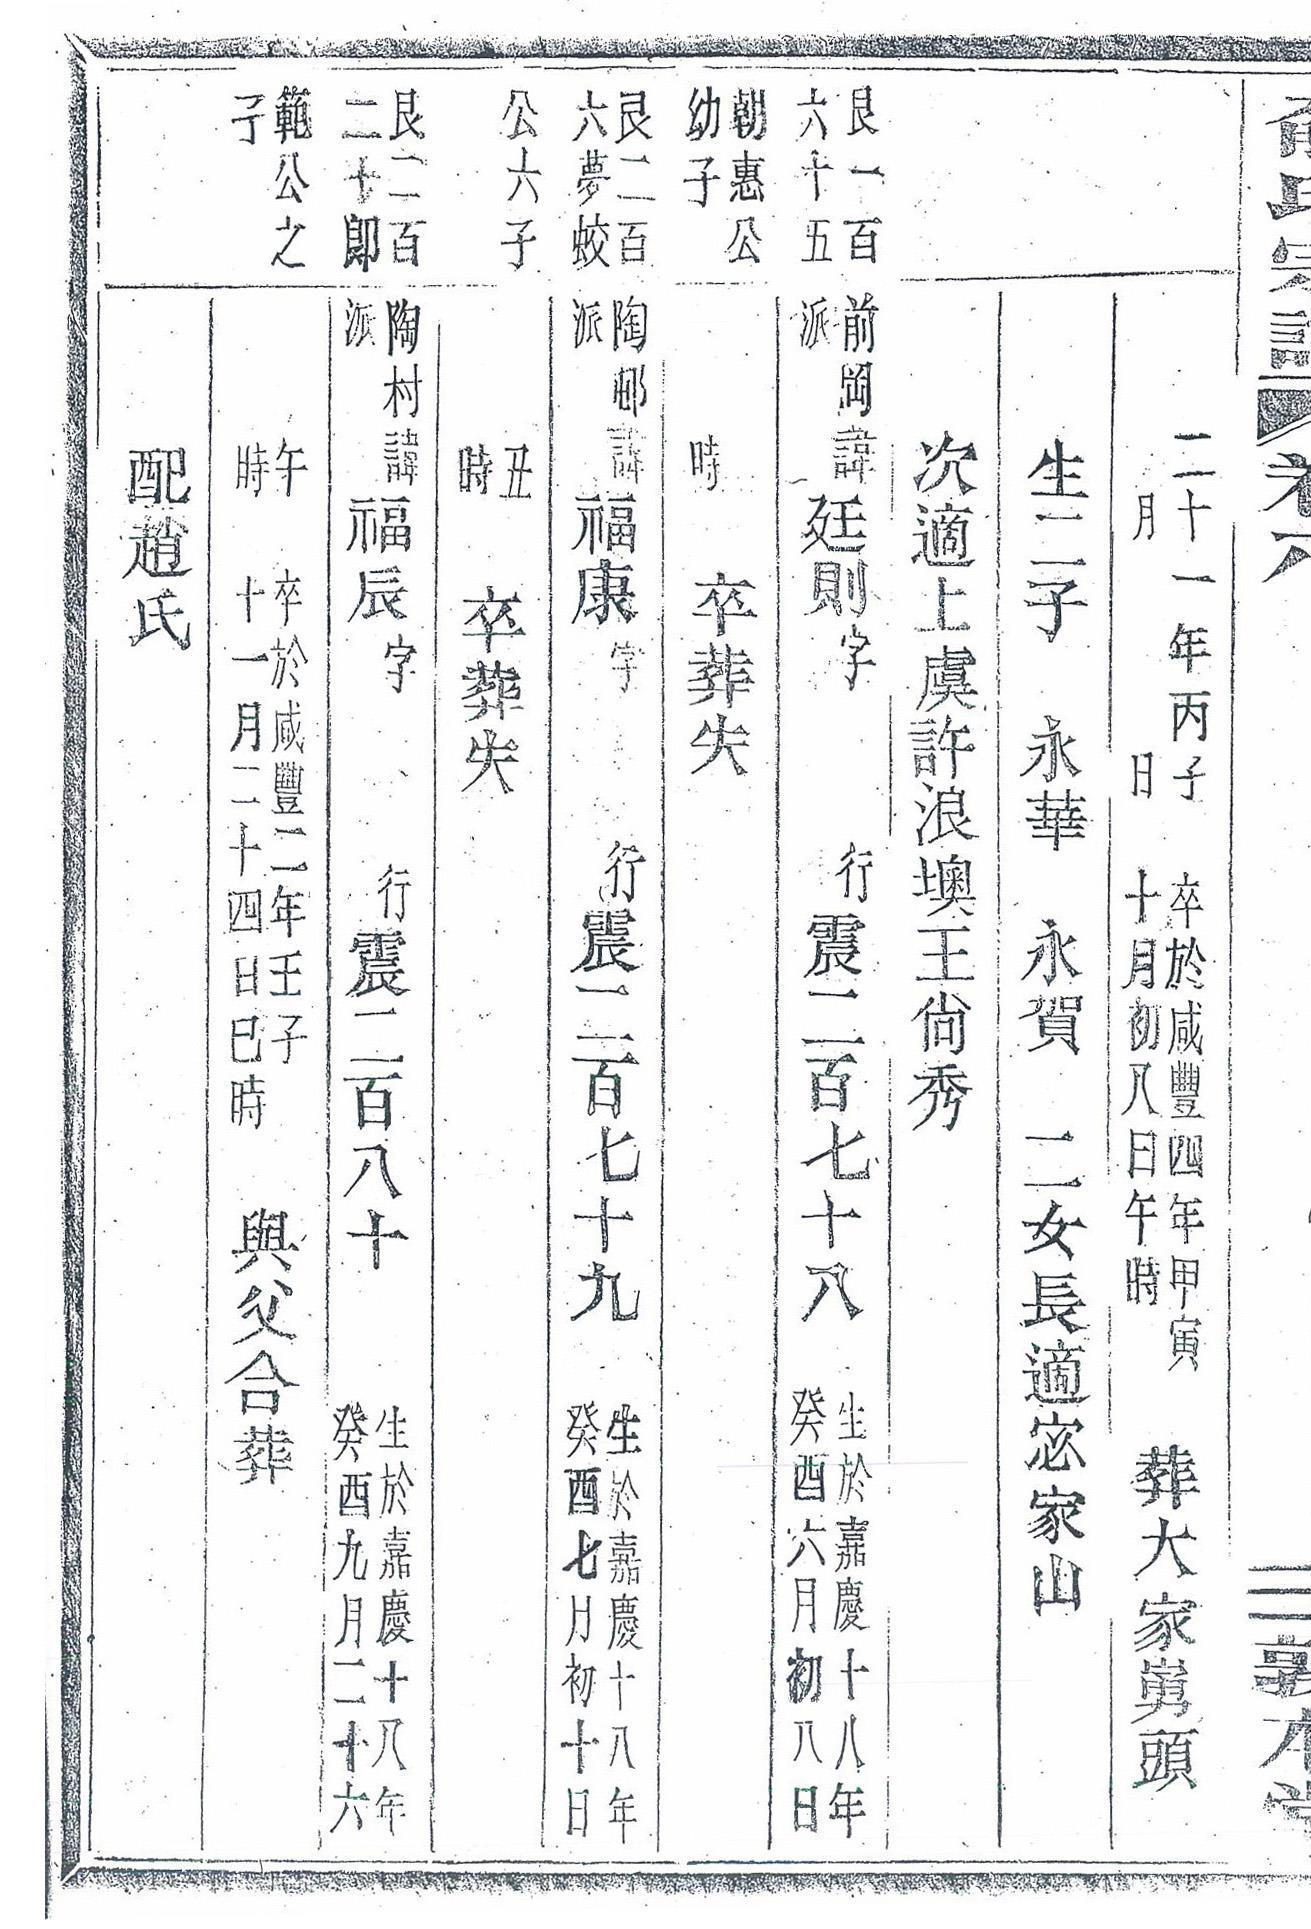 俞氏宗譜 卷六 三 敦本堂
二十一年丙子
月 日
卒於咸豐四年甲寅
十月初八日午時
葬大家嶴頭
生二子 永華 永賀 二女長適宓家山
次適上虞許浪墺王尙秀
艮一百
六十五
前岡諱
派
廷則字 行震二百七十八
生於嘉慶十八年
癸酉六月初八日
朝惠公
幼子
時 卒葬失
艮二百
六夢蛟
陶邨諱
派
福康字 行震二百七十九
生於嘉慶十八年
癸酉七月初十日
公六子
丑
時
卒葬失
艮二百
二十郎
陶村諱
派
福辰字 行震二百八十
生於嘉慶十八年
癸酉九月二十六
範公之
子
午
時
卒於咸豐二年壬子
十一月二十四日巳時
與父合葬
配趙氏